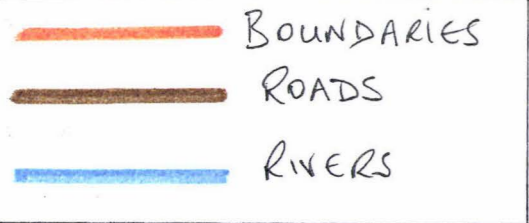 BOUNDARIES
ROADS
RIVERS